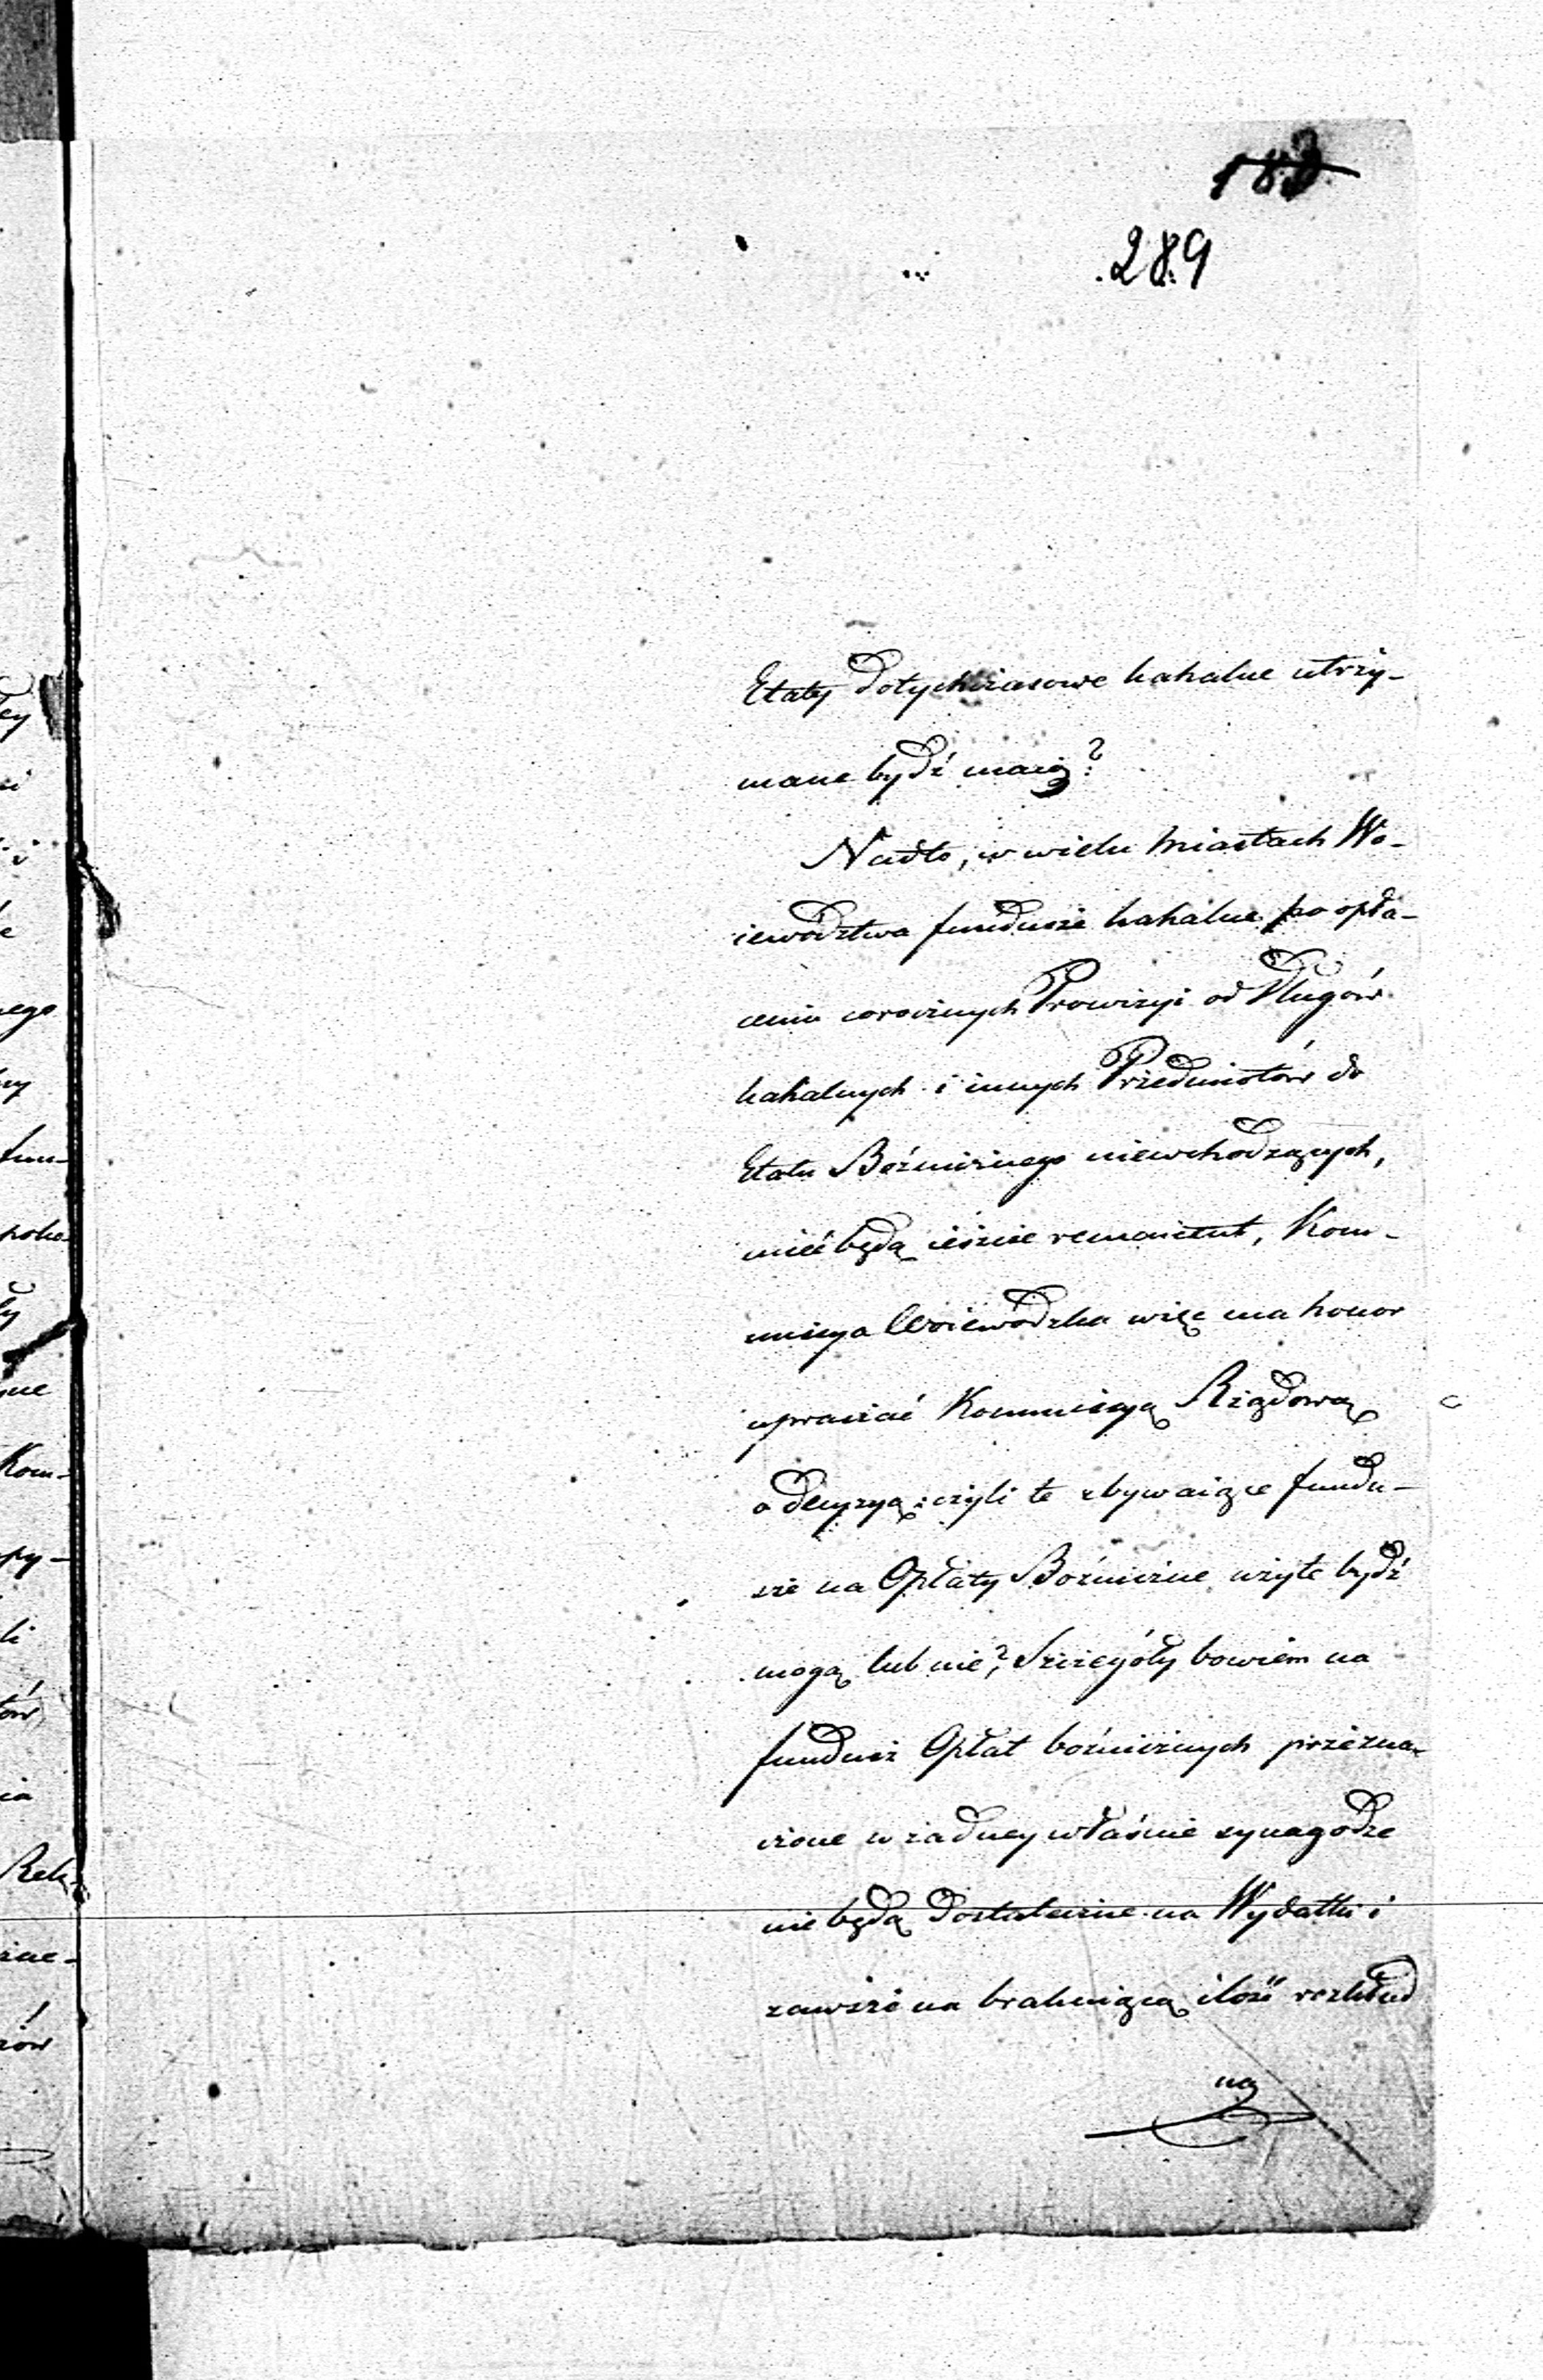 183
289
Etaty dotychczasowe kahalne utrzy-
mane bydź maią?
Nadto, w wielu Miastach Wo-
iewództwa fundusze kahalne po opła-
ceniu corocznych Prowizyi od Długów
kahalnych i innych Przedmiotów do
Etatu Bóżniczego niewchodzących,
mieć będą ieszcze remanent, Kom-
missya Woiewódzka więc ma honor
upraszać Kommissyą Rządową
o decyzyą: czyli te zbywaiące fundu-
sze na Opłaty Bóźnicze użyte bydź
mogą lub nie? Szczegóły bowiem na
fundusz Opłat bóżnicznych przezna-
czone w żadney właśnie synagodze
nie będą dostateczne na Wydatki i
zawsze na brakuiącą ilość rozkład
na